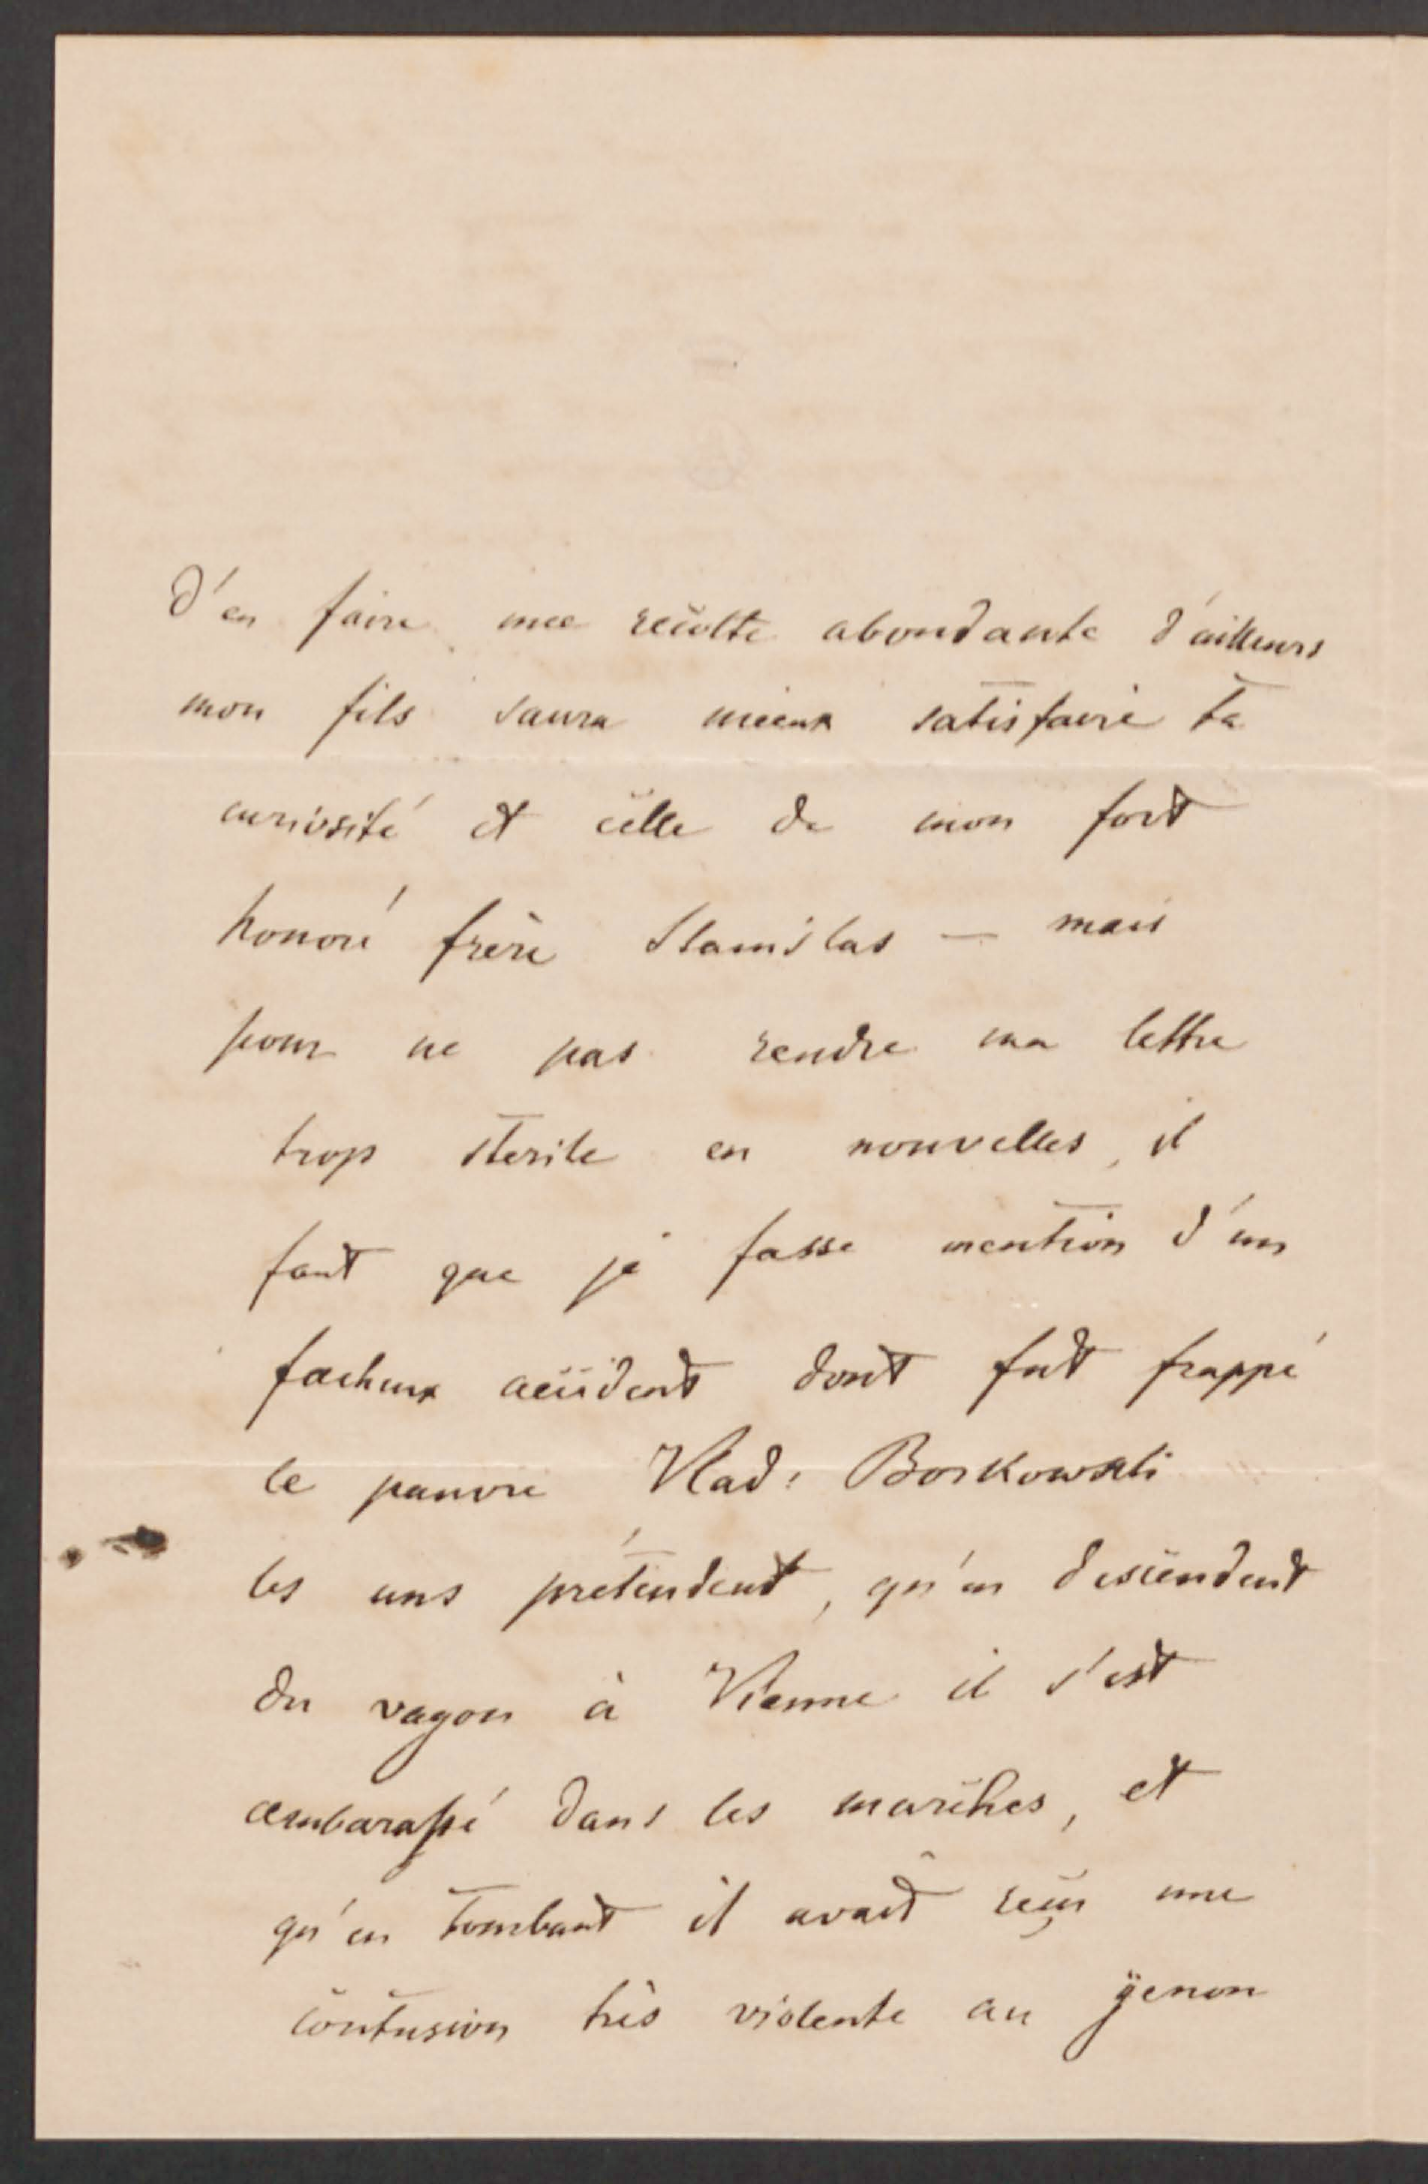 d'en faire une recolte abondante d'ailleurs
mon fils saura mieux satisfaire ta
curiosité et celle de mon fort
honoré frère Stanislas — mais
pour ne pas rendre ma lettre
trop sterile en nouvelles, il
faut que je fasse mention d'un
facheux accident dont fut frappé
le pauvre Vlad: Borkowski
les uns prétendent, qu'en descendent
du vagon à Vienne il s'est
embarassé dans les marches, et
qu'en tombant il avait reçu une
contusion très violente au genou